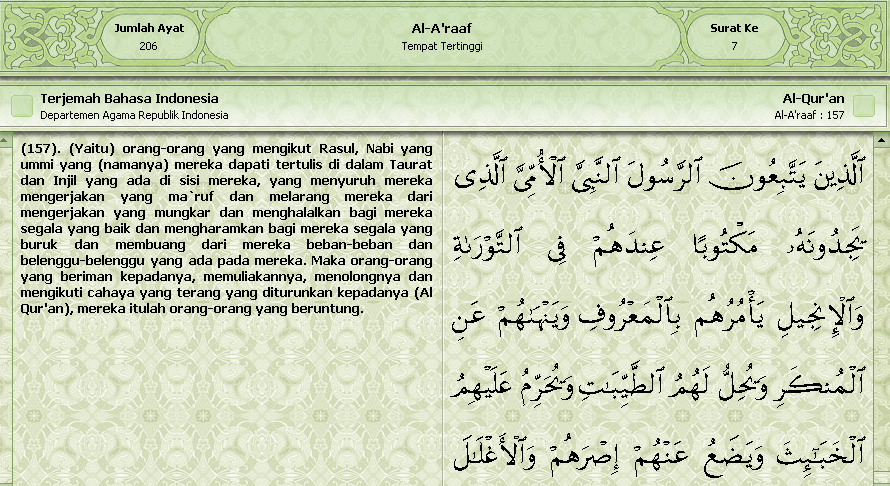 Jumlah Ayat
206
Al-A'raaf
Tempat Tertinggi
Surat Ke
7
Terjemah Bahasa Indonesia
Departemen Agama Republik Indonesia
Al-Qur'an
Al-A'raaf : 157
(157). (Yaitu) orang-orang yang mengikut Rasul, Nabi yang
ummi yang (namanya) mereka dapati tertulis di dalam Taurat
dan Injil yang ada di sisi mereka, yang menyuruh mereka
mengerjakan yang ma`ruf dan melarang mereka dari
mengerjakan yang mungkar dan menghalalkan bagi mereka
segala yang baik dan mengharamkan bagi mereka segala yang
buruk dan membuang dari mereka beban-beban dan
belenggu-belenggu yang ada pada mereka. Maka orang-orang
yang beriman kepadanya, memuliakannya, menolongnya dan
mengikuti cahaya yang terang yang diturunkan kepadanya (Al
Qur'an), mereka itulah orang-orang yang beruntung.
ٱلَّذِينَ يَتَّبِعُونَ ٱلرَّسُولَ ٱلنَّبِىَّ ٱلْأُمِّىَّ ٱلَّذِى
يَجِدُونَهُۥ مَكْتُوبًا عِندَهُمْ فِى ٱلتَّوْرَىٰةِ
وَٱلْإِنجِيلِ يَأْمُرُهُم بِٱلْمَعْرُوفِ وَيَنْهَىٰهُمْ عَنِ
ٱلْمُنكَرِ وَيُحِلُّ لَهُمُ ٱلطَّيِّبَـٰتِ وَيُحَرِّمُ عَلَيْهِمُ
ٱلْخَبَـٰٓئِثَ وَيَضَعُ عَنْهُمْ إِصْرَهُمْ وَٱلْأَغْلَـٰلَ